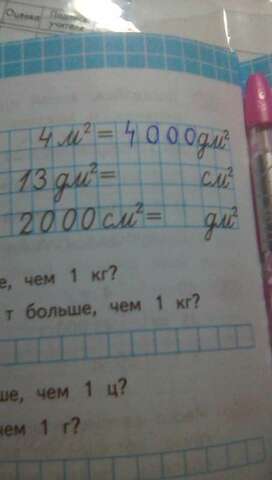 Оценка
учителя
4 м² = 4000 дм²
13 дм² = см²
2000 см² = дм²
е, чем 1 кг?
т больше, чем 1 кг?
ше, чем 1 ц?
чем 1 г?